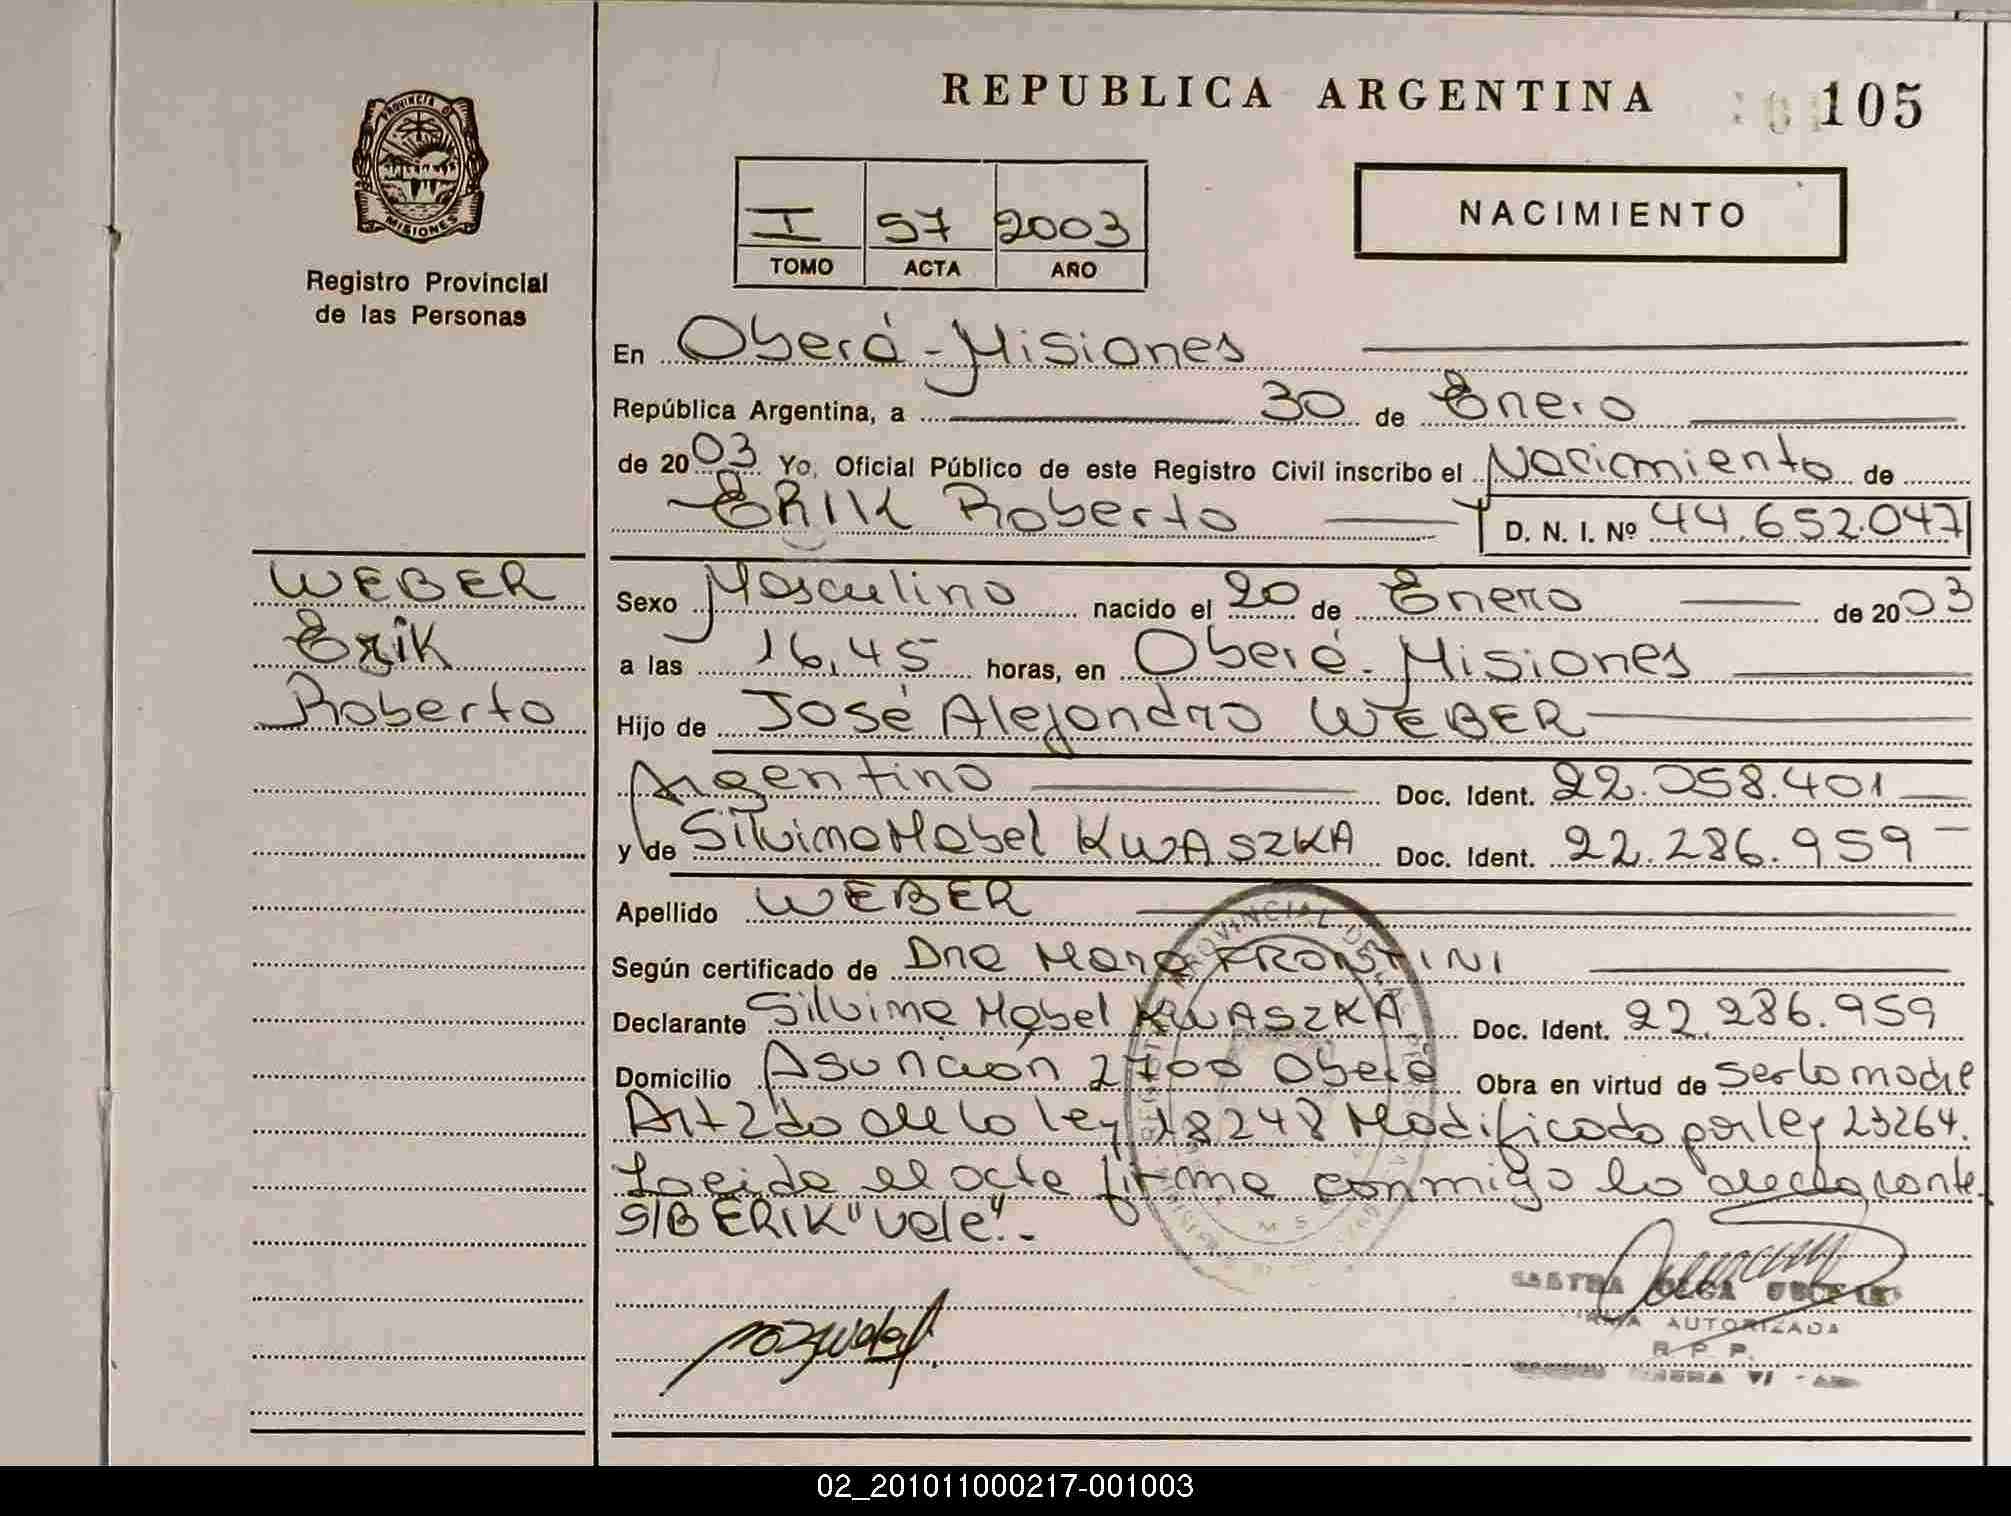 REPUBLICA ARGENTINA
105
PROVINCIA DE
MISIONES
Registro Provincial
de las Personas
I 57 2003
TOMO ACTA AÑO
NACIMIENTO
En Oberá - Misiones
República Argentina, a 30 de Enero
de 2003 Yo, Oficial Público de este Registro Civil inscribo el Nacimiento de
ERIK Roberto D. N. I. Nº 44.652.047
WEBER
Erik
Roberto
Sexo Masculino nacido el 20 de Enero de 2003
a las 16,45 horas, en Oberá - Misiones
Hijo de José Alejandro WEBER
Argentino Doc. Ident. 22.058.401
y de Silvina Mabel KWASZKA Doc. Ident. 22.286.959
Apellido WEBER
Según certificado de Dra
Declarante Silvina Mabel KWASZKA Doc. Ident. 22.286.959
Domicilio Asunción 2700 Oberá Obra en virtud de ser la madre
Art 2do de la ley 18248 Modificado por ley 23264.
Leida el acta firma conmigo la declarante.
S/B ERIK "Vale".-
OLGA
AUTORIZADA
R. P. P.
02_201011000217-001003